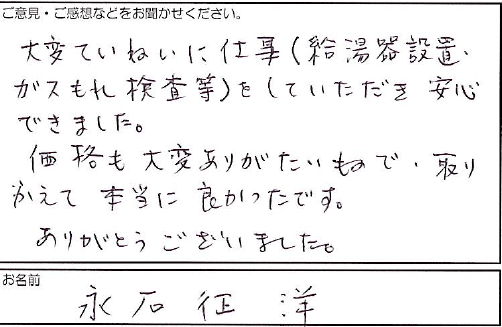 ご意見・ご感想などをお聞かせください。
大変ていねいに仕事(給湯器設置・
ガスもれ検査等)をしていただき 安心
できました。
価格も大変ありがたいもので、取り
かえて 本当に良かったです。
ありがとうございました。
お名前
永石征洋